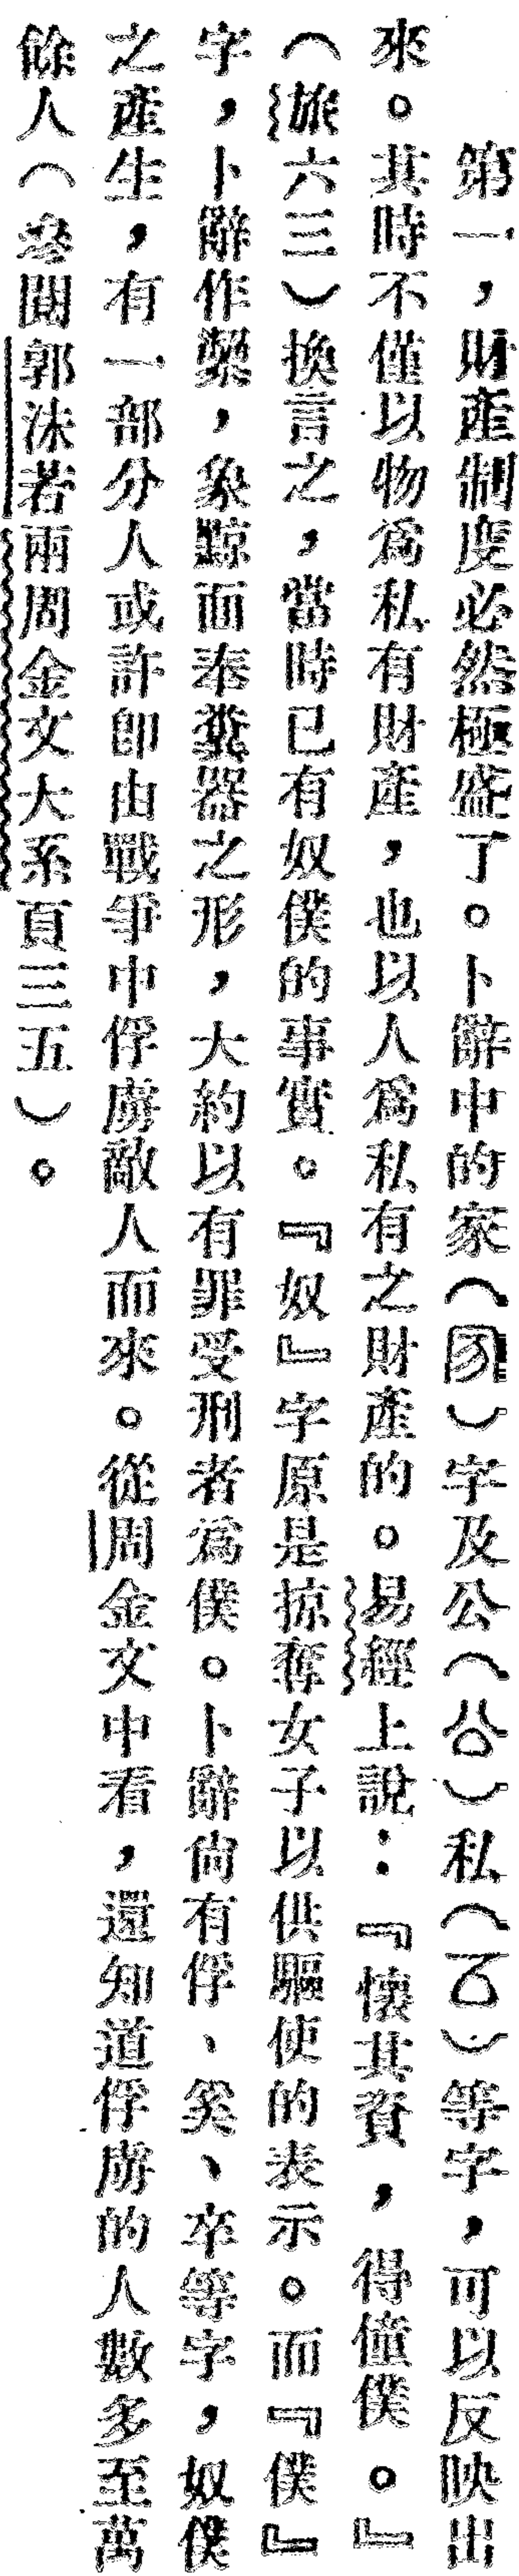 第一，財產制度必然極盛了。卜辭中的家（）字及公（）私（）等字，可以反映出
來。其時不僅以物爲私有財產，也以人爲私有之財產的。易經上說：『懷其資，得僮僕。』
（旅六三）換言之，當時已有奴僕的事實。『奴』字原是掠奪女子以供驅使的表示。而『僕』
字，卜辭作，象黥面奉糞器之形，大約以有罪受刑者爲僕。卜辭尚有俘、奚、卒等字，奴僕
之產生，有一部分人或許即由戰爭中俘虜敵人而來。從周金文中看，還知道俘虜的人數多至萬
餘人（參閱郭沫若兩周金文大系頁三五）。